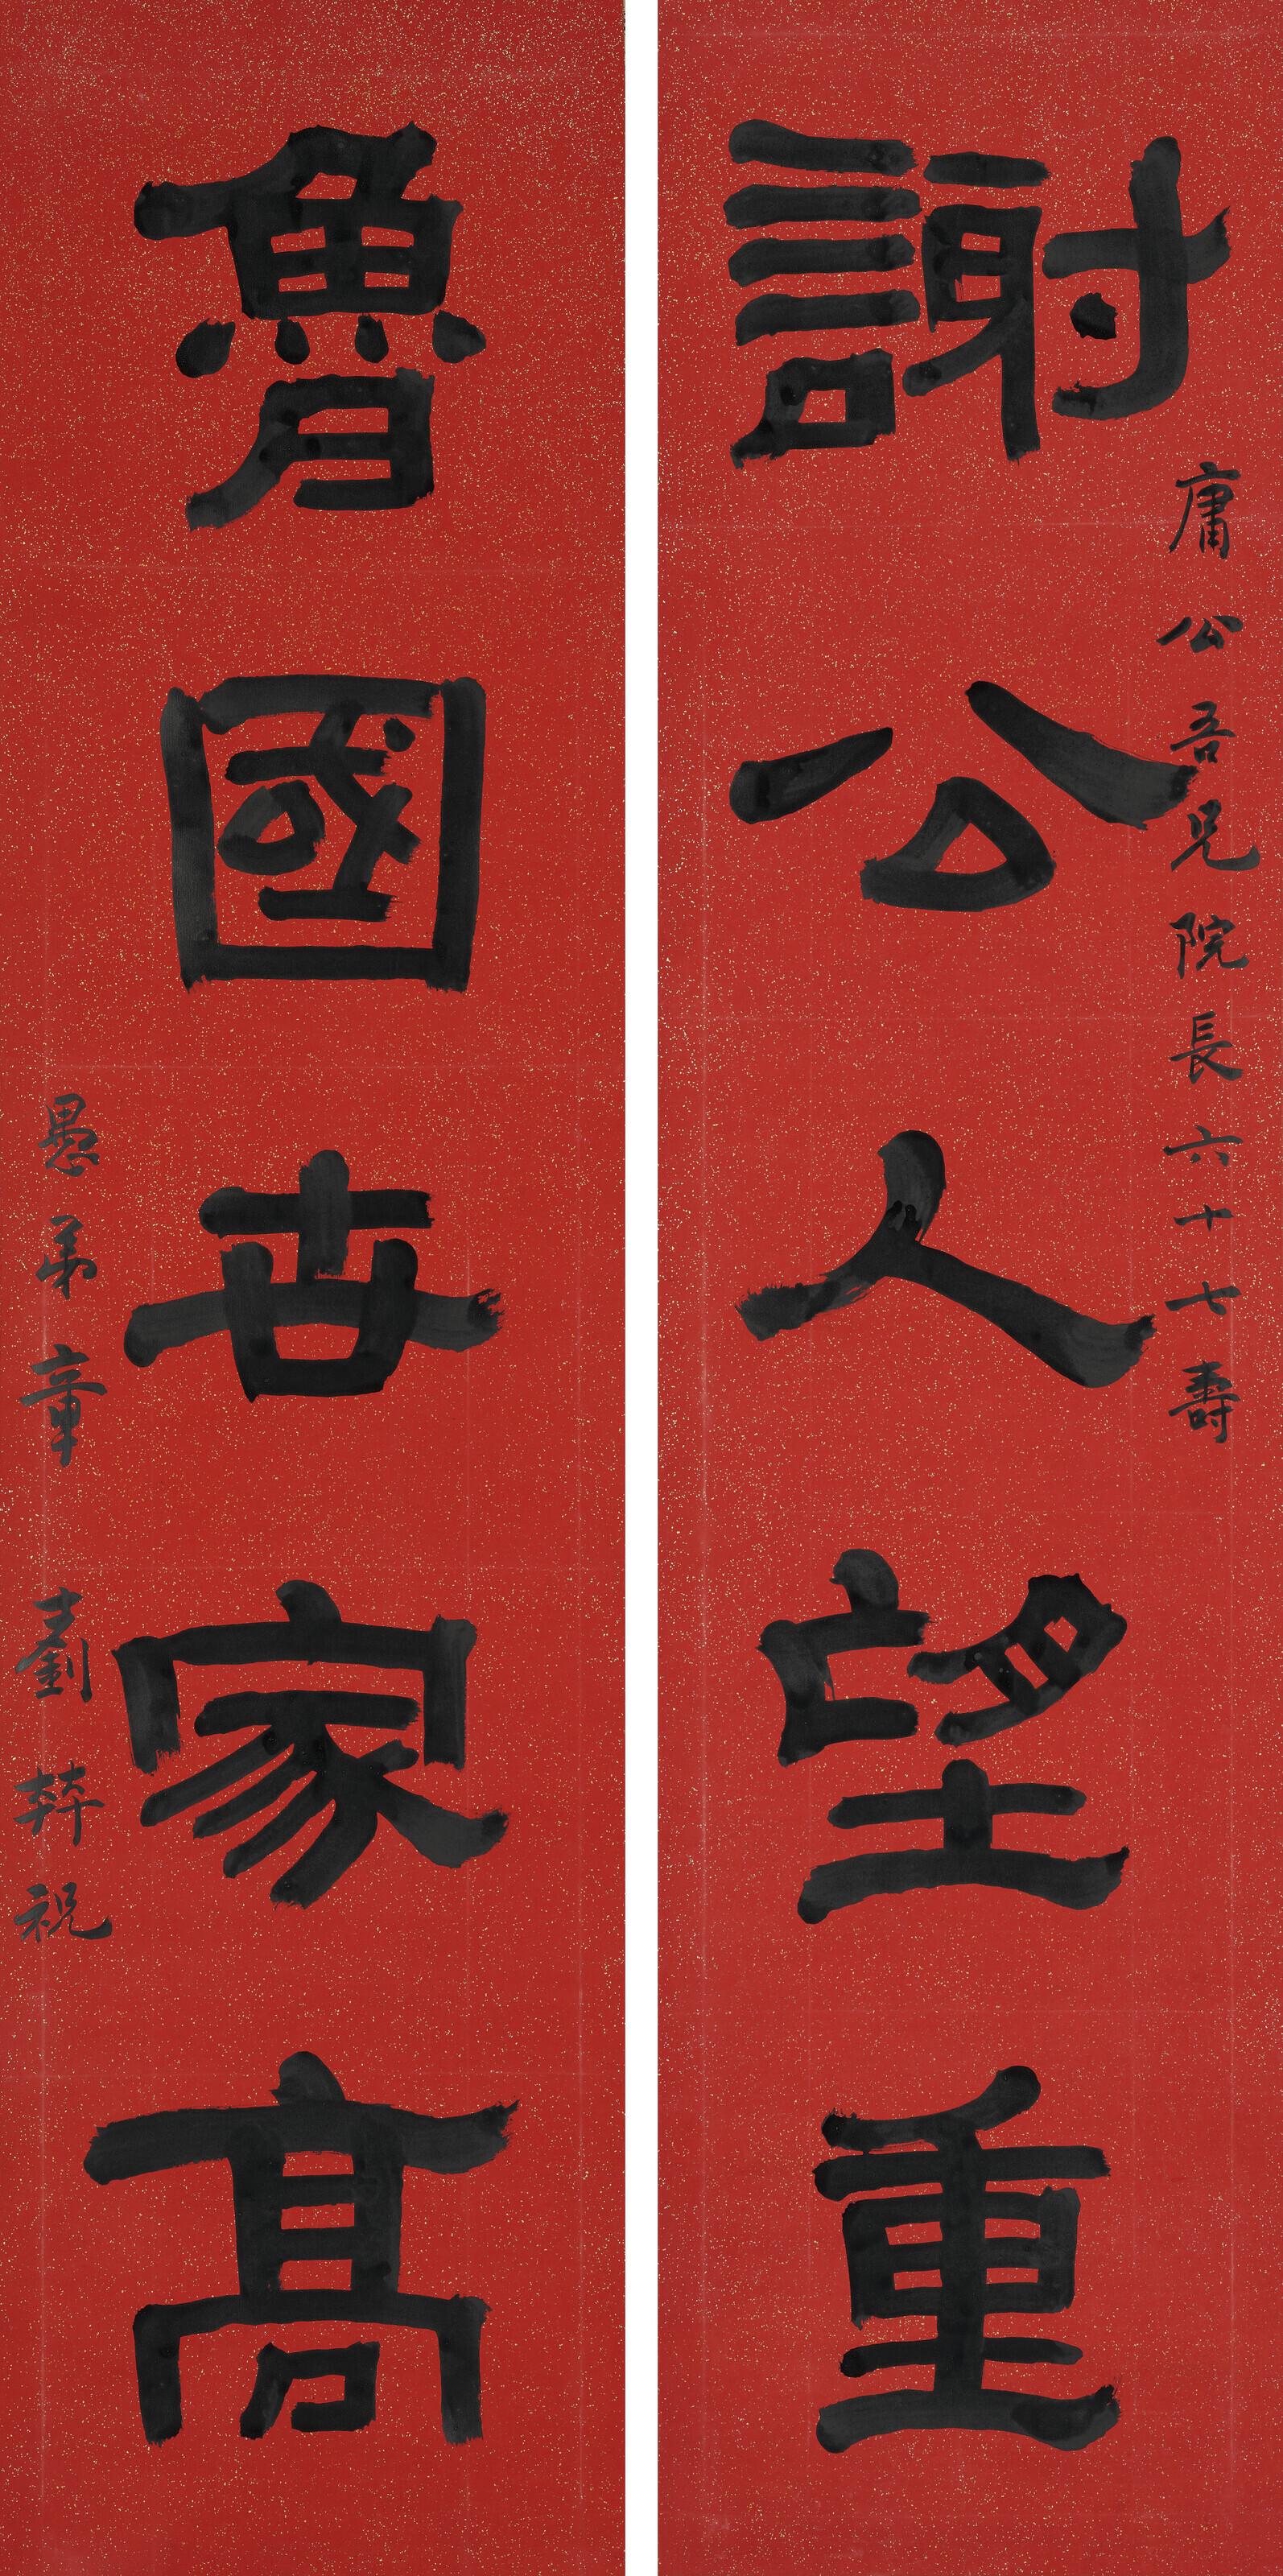 謝公人望重
庸公吾兄院長六十七壽
魯國世家高
愚弟章士釗拜祝